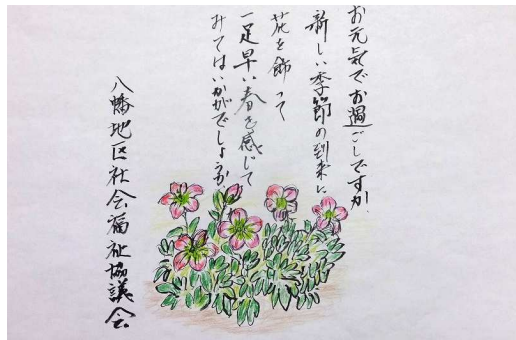 お元気でお過ごしですか、
新しい季節の到来に
花を飾って
一足早い春を感じて
みてはいかがでしょうか、
八幡地区社会福祉協議会